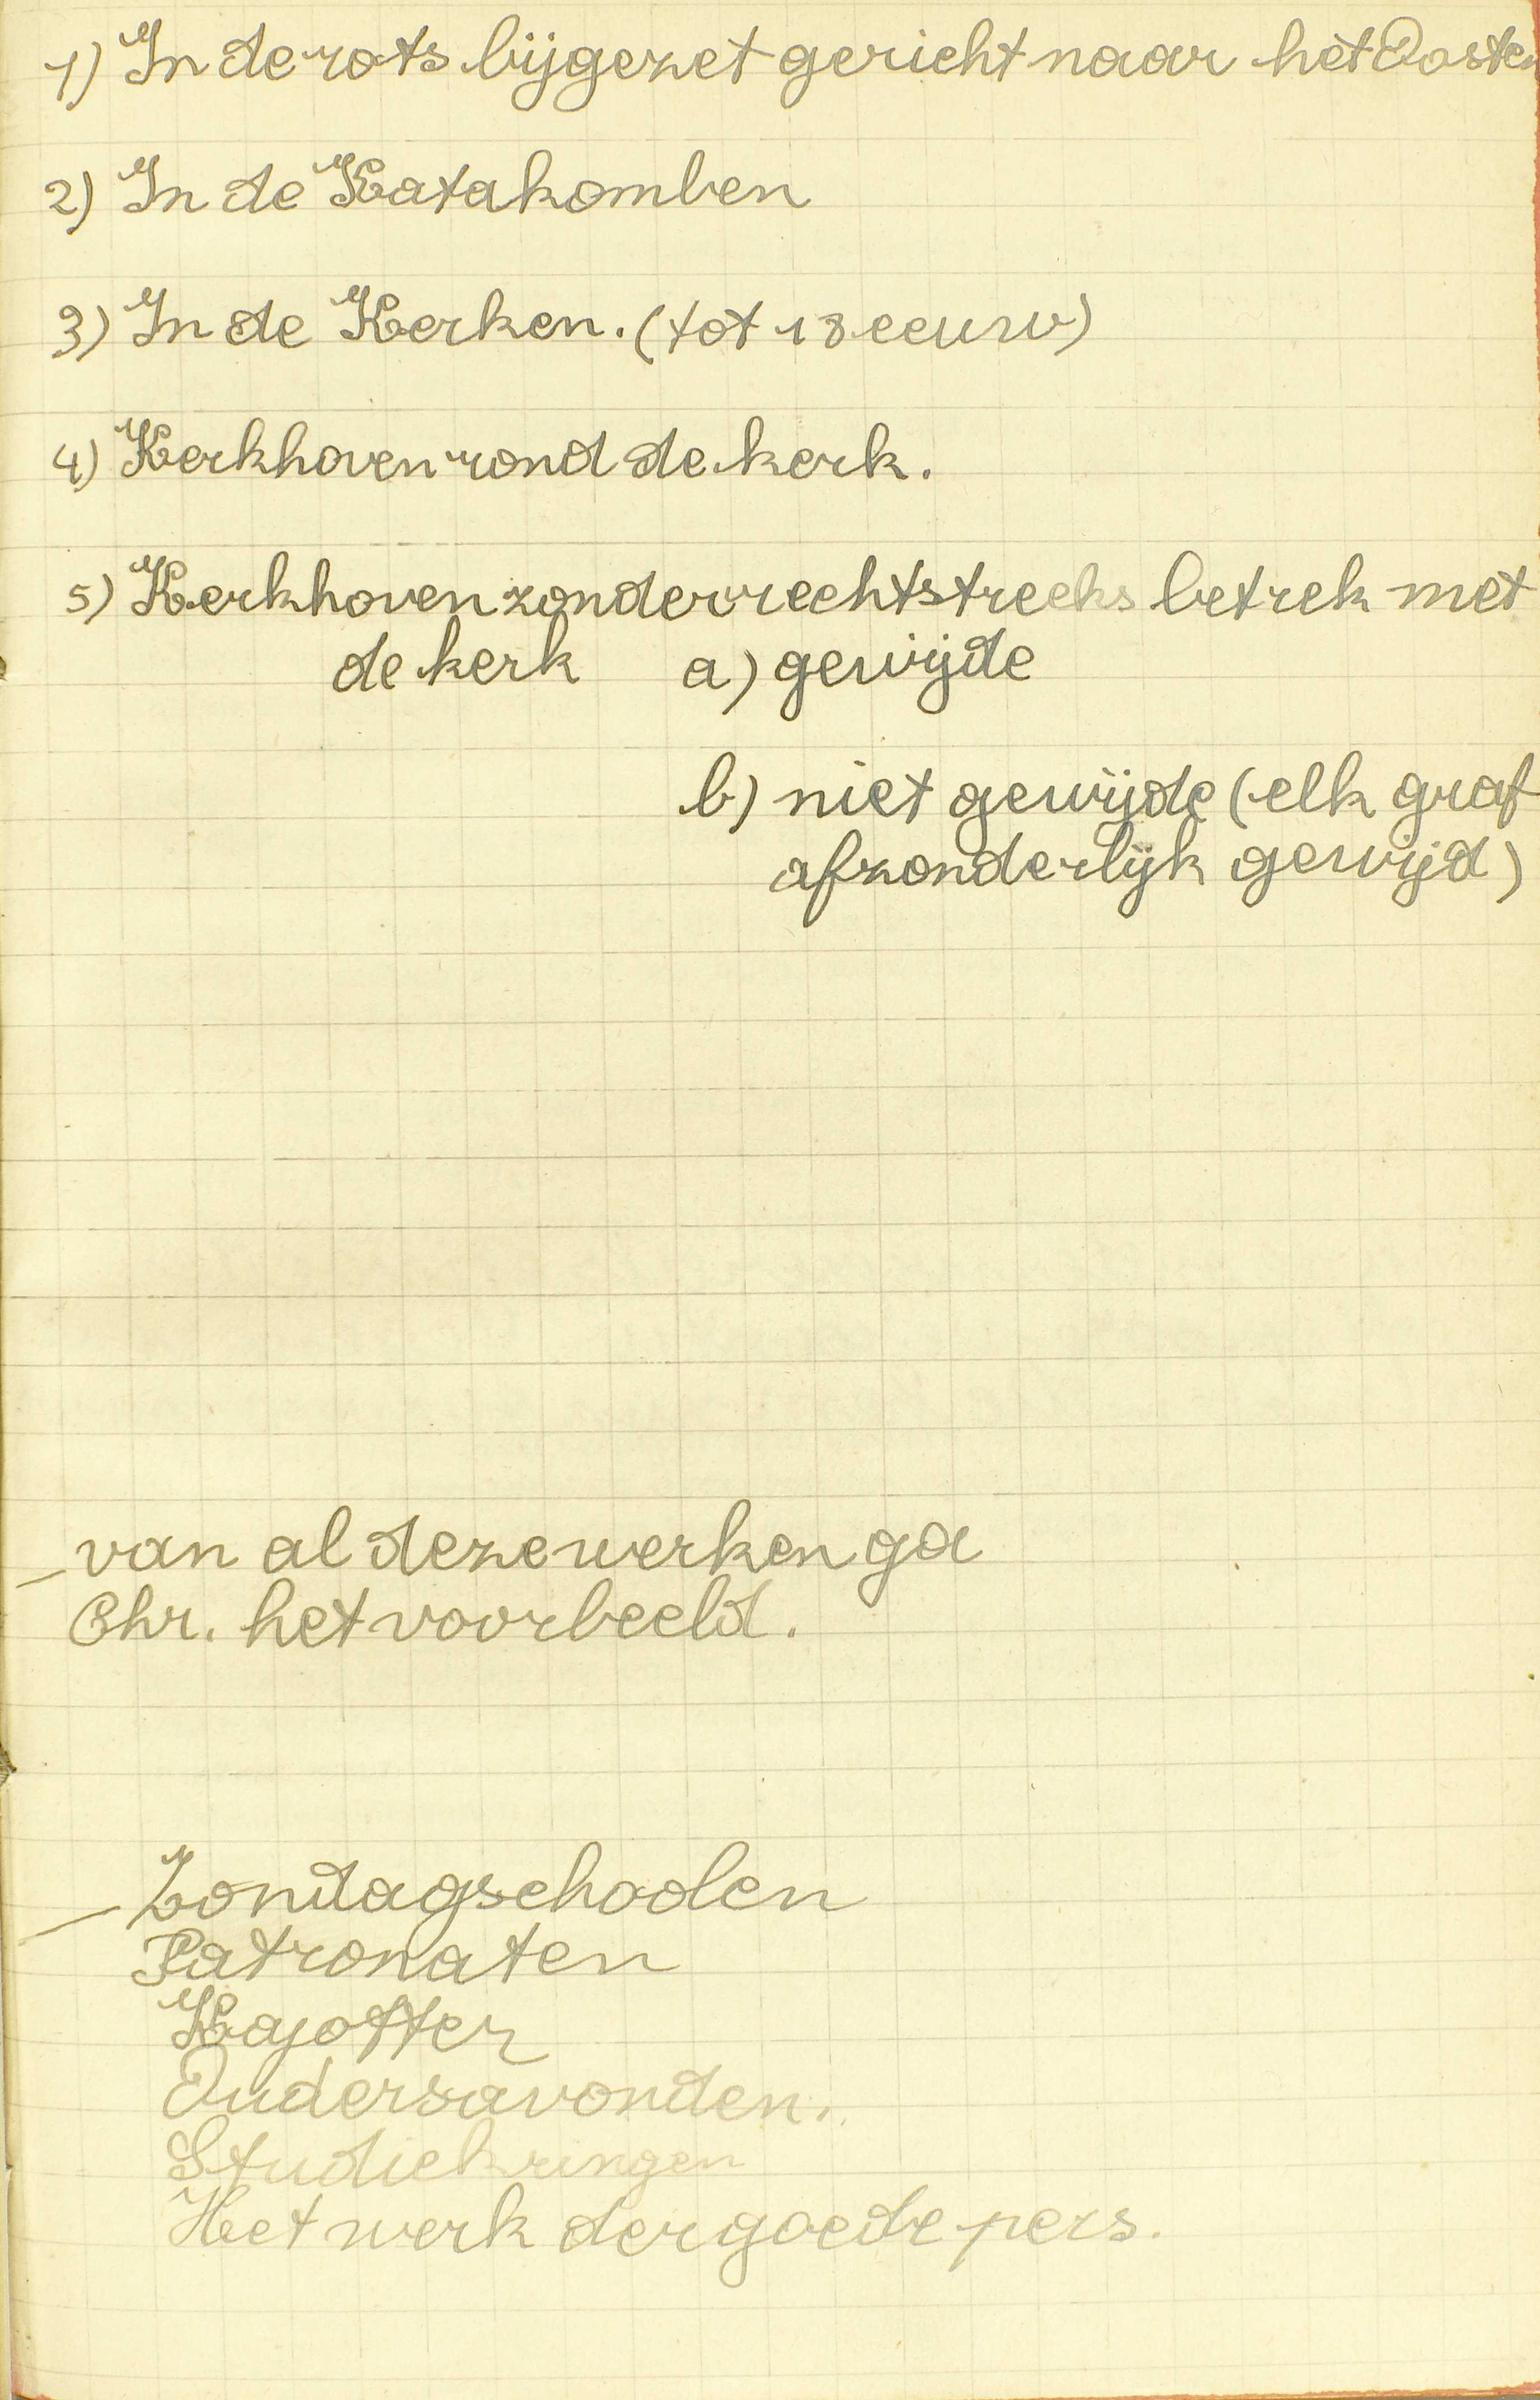 1) In de rots bijgezet gericht naar het Oosten
2) In de Katakomben
3) In de Kerken. (tot 18 eeuw)
4) Kerkhoven rond de kerk.
5) Kerkhoven zonder rechtstreeks betrek met
de kerk a) gewijde
b) niet gewijde (elk graf
afzonderlijk gewijd)
_ van al deze werken ga
Chr. het voorbeeld.
_ Zondagschoolen
Patronaten
Kajotter
Oudersavonden.
Studiekringen
Het werk der goede pers.